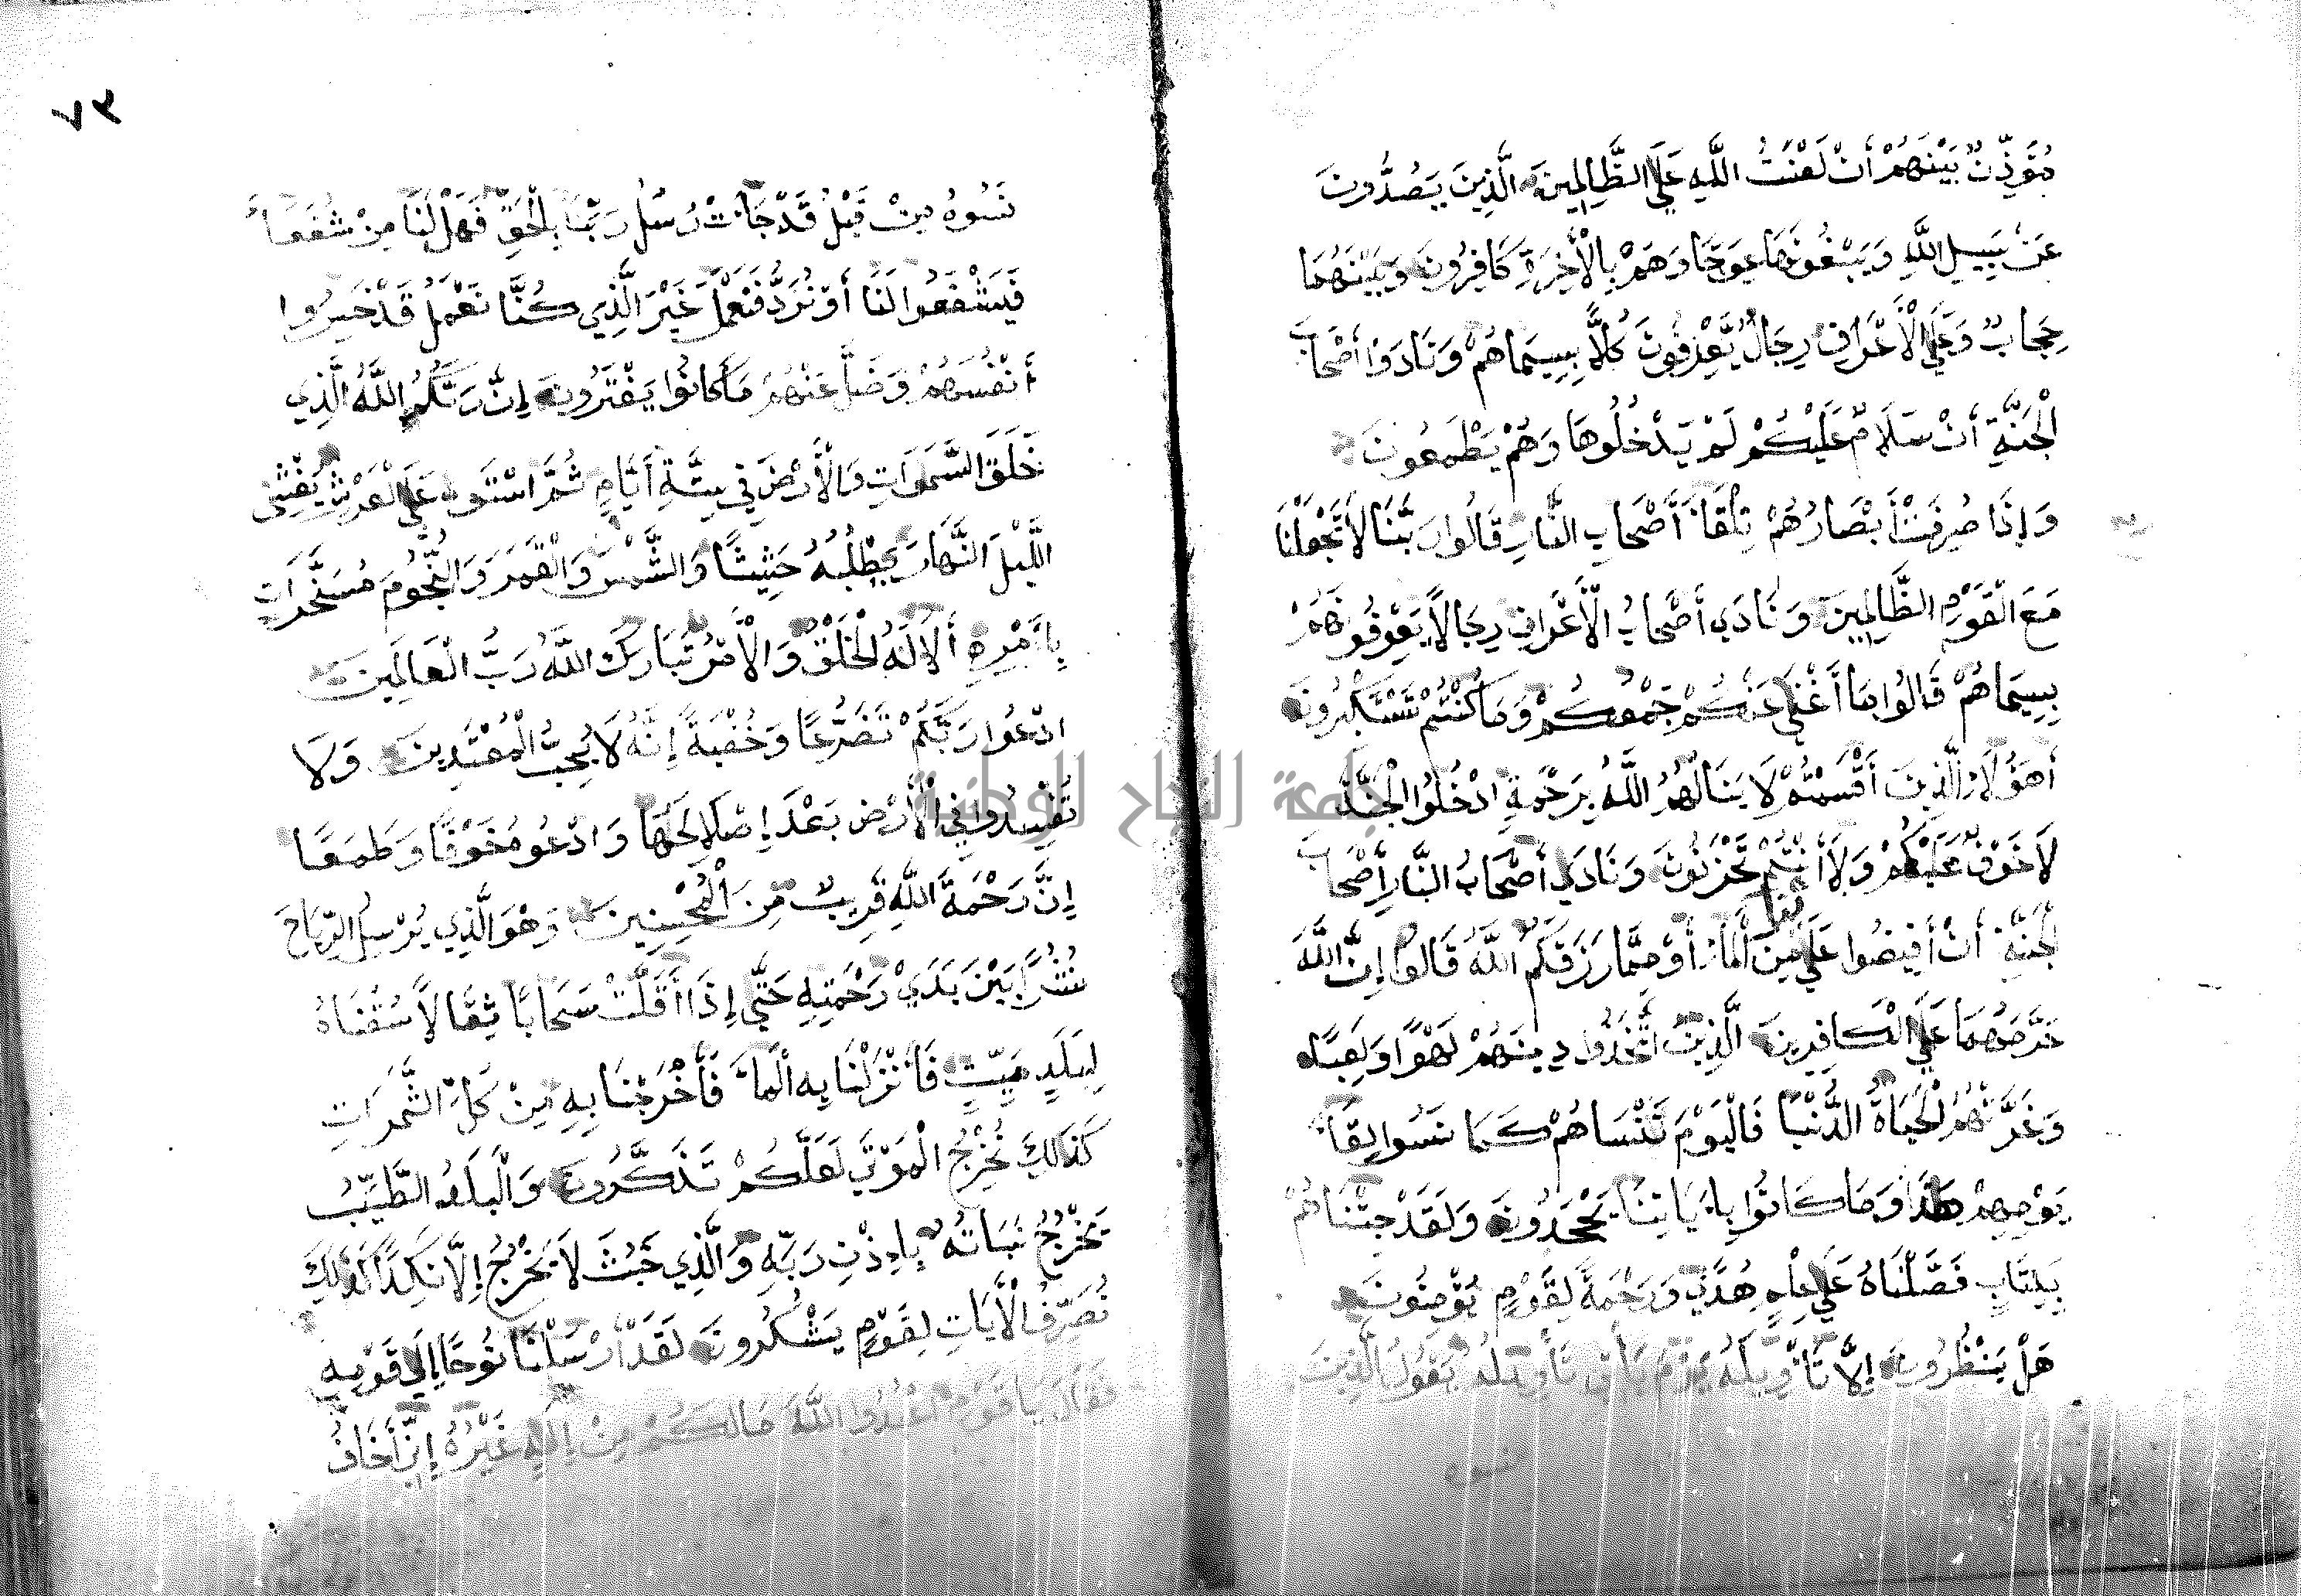 مُؤَذِّنٌ بَيْنَهُمْ أَنْ لَعْنَتُ اللَّهِ عَلَى الظَّالِمِينَ الَّذِينَ يَصُدُّونَ
عَنْ سَبِيلِ اللَّهِ وَيَبْغُونَهَا عِوَجًا وَهُمْ بِالْأَخِرَةِ كَافِرُونَ وَبَيْنَهُمَا
حِجَابٌ وَعَلَى الْأَعْرَافِ رِجَالٌ يَعْرِفُونَ كُلًّا بِسِيمَاهُمْ وَنَادَوْا أَصْحَابَ
الْجَنَّةِ أَنْ سَلَامٌ عَلَيْكُمْ لَمْ يَدْخُلُوهَا وَهُمْ يَطْمَعُونَ
وَإِذَا صُرِفَتْ أَبْصَارُهُمْ تِلْقَاَ أَصْحَابِ النَّارِ قَالُوا رَبَّنَا لَا تَجْعَلْنَا
مَعَ الْقَوْمِ الظَّالِمِينَ وَنَادَى أَصْحَابُ الْأَعْرَافِ رِجَالًا يَعْرِفُونَهُمْ
بِسِيمَاهُمْ قَالُوا مَا أَغْنَى عَنْكُمْ جَمْعُكُمْ وَمَا كُنْتُمْ تَسْتَكْبِرُونَ
أَهَؤُلَاءِ الَّذِينَ أَقْسَمْتُمْ لَا يَنَالُهُمُ اللَّهُ بِرَحْمَةٍ ادْخُلُوا الْجَنَّةَ
لَا خَوْفٌ عَلَيْكُمْ وَلَا أَنْتُمْ تَحْزَنُونَ وَنَادَى أَصْحَابُ النَّارِ أَصْحَابَ
الْجَنَّةِ أَنْ أَفِيضُوا عَلَيْنَا مِنَ الْمَاءِ أَوْ مِمَّا رَزَقَكُمُ اللَّهُ قَالُوا إِنَّ اللَّهَ
حَرَّمَهُمَا عَلَى الْكَافِرِينَ الَّذِينَ اتَّخَذُوا دِينَهُمْ لَهْوًا وَلَعِبًا
وَغَرَّتْهُمُ الْحَيَاةُ الدُّنْيَا فَالْيَوْمَ نَنْسَاهُمْ كَمَا نَسُوا لِقَاَ
يَوْمِهِمْ هَذَا وَمَا كَانُوا بِأَيَاتِنَا يَجْحَدُونَ وَلَقَدْ جِئْنَاهُمْ
بِكِتَابٍ فَصَّلْنَاهُ عَلَى عِلْمٍ هُدًى وَرَحْمَةً لِقَوْمٍ يُؤْمِنُونَ
هَلْ يَنْظُرُونَ إِلَّا تَأْوِيلَهُ يَوْمَ يَأْتِي تَأْوِيلُهُ يَقُولُ الَّذِينَ
٧٣
نَسُوهُ مِنْ قَبْلُ قَدْ جَاَتْ رُسُلُ رَبِّنَا بِالْحَقِّ فَهَلْ لَنَا مِنْ شُفَعَاَ
فَيَشْفَعُوا لَنَا أَوْ نُرَدُّ فَنَعْمَلَ غَيْرَ الَّذِي كُنَّا نَعْمَلُ قَدْ خَسِرُوا
أَنْفُسَهُمْ وَضَلَّ عَنْهُمْ مَا كَانُوا يَفْتَرُونَ إِنَّ رَبَّكُمُ اللَّهُ الَّذِي
خَلَقَ السَّمَوَاتِ وَالْأَرْضَ فِي سِتَّةِ أَيَّامٍ ثُمَّ اسْتَوَى عَلَى الْعَرْشِ يُغْشِي
اللَّيْلَ النَّهَارَ يَطْلُبُهُ حَثِيثًا وَالشَّمْسَ وَالْقَمَرَ وَالنُّجُومَ مُسَخَّرَاتٍ
بِأَمْرِهِ أَلَا لَهُ الْخَلْقُ وَالْأَمْرُ تَبَارَكَ اللَّهُ رَبُّ الْعَالَمِينَ
ادْعُوا رَبَّكُمْ تَضَرُّعًا وَخُفْيَةً إِنَّهُ لَا يُحِبُّ الْمُعْتَدِينَ وَلَا
تُفْسِدُوا فِي الْأَرْضِ بَعْدَ إِصْلَاحِهَا وَادْعُوهُ خَوْفًا وَطَمَعًا
إِنَّ رَحْمَةَ اللَّهِ قَرِيبٌ مِنَ الْمُحْسِنِينَ وَهْوَ الَّذِي يُرْسِلُ الرِّيَاحَ
نُشُرًا بَيْنَ يَدَيْ رَحْمَتِهِ حَتَّى إِذَا أَقَلَّتْ سَحَابًا ثِقَالًا سُقْنَاهُ
لِبَلَدٍ مَيِّتٍ فَأَنْزَلْنَا بِهِ الْمَاَ فَأَخْرَجْنَا بِهِ مِنْ كُلِّ الثَّمَرَاتِ
كَذَلِكَ نُخْرِجُ الْمَوْتَى لَعَلَّكُمْ تَذَكَّرُونَ وَالْبَلَدُ الطَّيِّبُ
يَخْرُجُ نَبَاتُهُ بِإِذْنِ رَبِّهِ وَالَّذِي خَبُثَ لَا يَخْرُجُ إِلَّا نَكِدًا كَذَلِكَ
نُصَرِّفُ الْأَيَاتِ لِقَوْمٍ يَشْكُرُونَ لَقَدْ أَرْسَلْنَا نُوحًا إِلَى قَوْمِهِ
فَقَالَ يَا قَوْمِ اعْبُدُوا اللَّهَ مَا لَكُمْ مِنْ إِلَهٍ غَيْرُهُ إِنِّي أَخَافُ
جامعة النجاح الوطنية